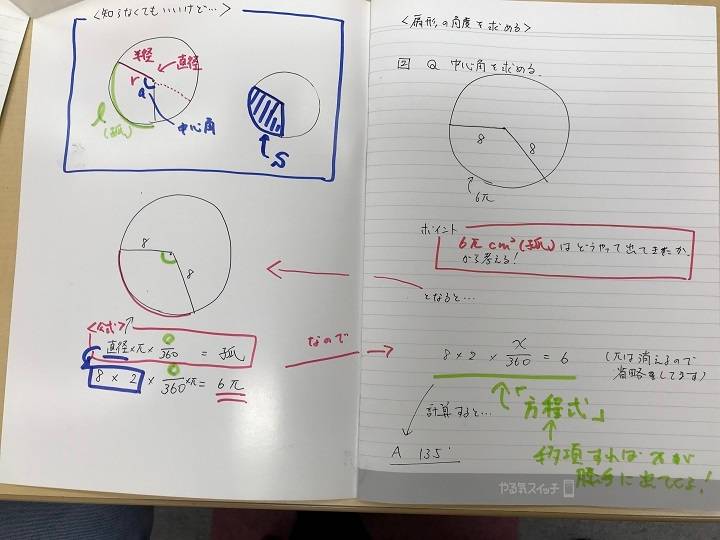 <知らなくてもいいけど…>
半径
直径
r
a
l
(孤)
中心角
S
8
8
<公式>
直径×π×0/360 = 孤
8×2×0/360×π= 6π
なので
<扇形の角度を求める>
図 Q 中心角を求める
8
8
6π
ポイント
6π cm²(孤)はどうやって出てきたか
から考える!
となると…
8×2×x/360=6
(πは消えるので
省略をしてます)
計算すると…
「方程式」
A 135°
移項すればxが
勝手に出てくる!
やる気スイッチ